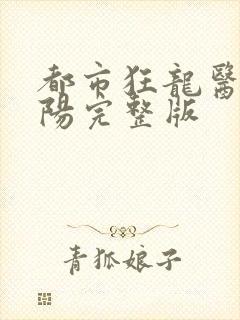 都市狂龍醫
陽完整版
青狐娘子